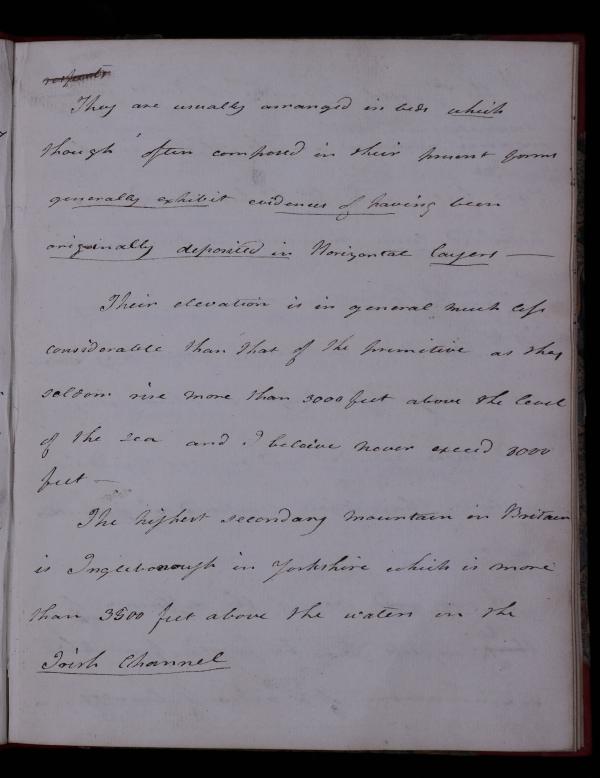 They are usually arranged in beds which
though often composed in their present forms
generally exhibit evidences of having been
originally deposited in Horizontal layers —
Their elevation is in general much less
considerable than that of the primitive as they
seldom rise more than 3000 feet above the level
of the sea and I beleive never exceed 7000
feet —
The highest secondary mountain in Britain
is Ingleborough in Yorkshire which is more
than 3500 feet above the waters in the
Irish Channel